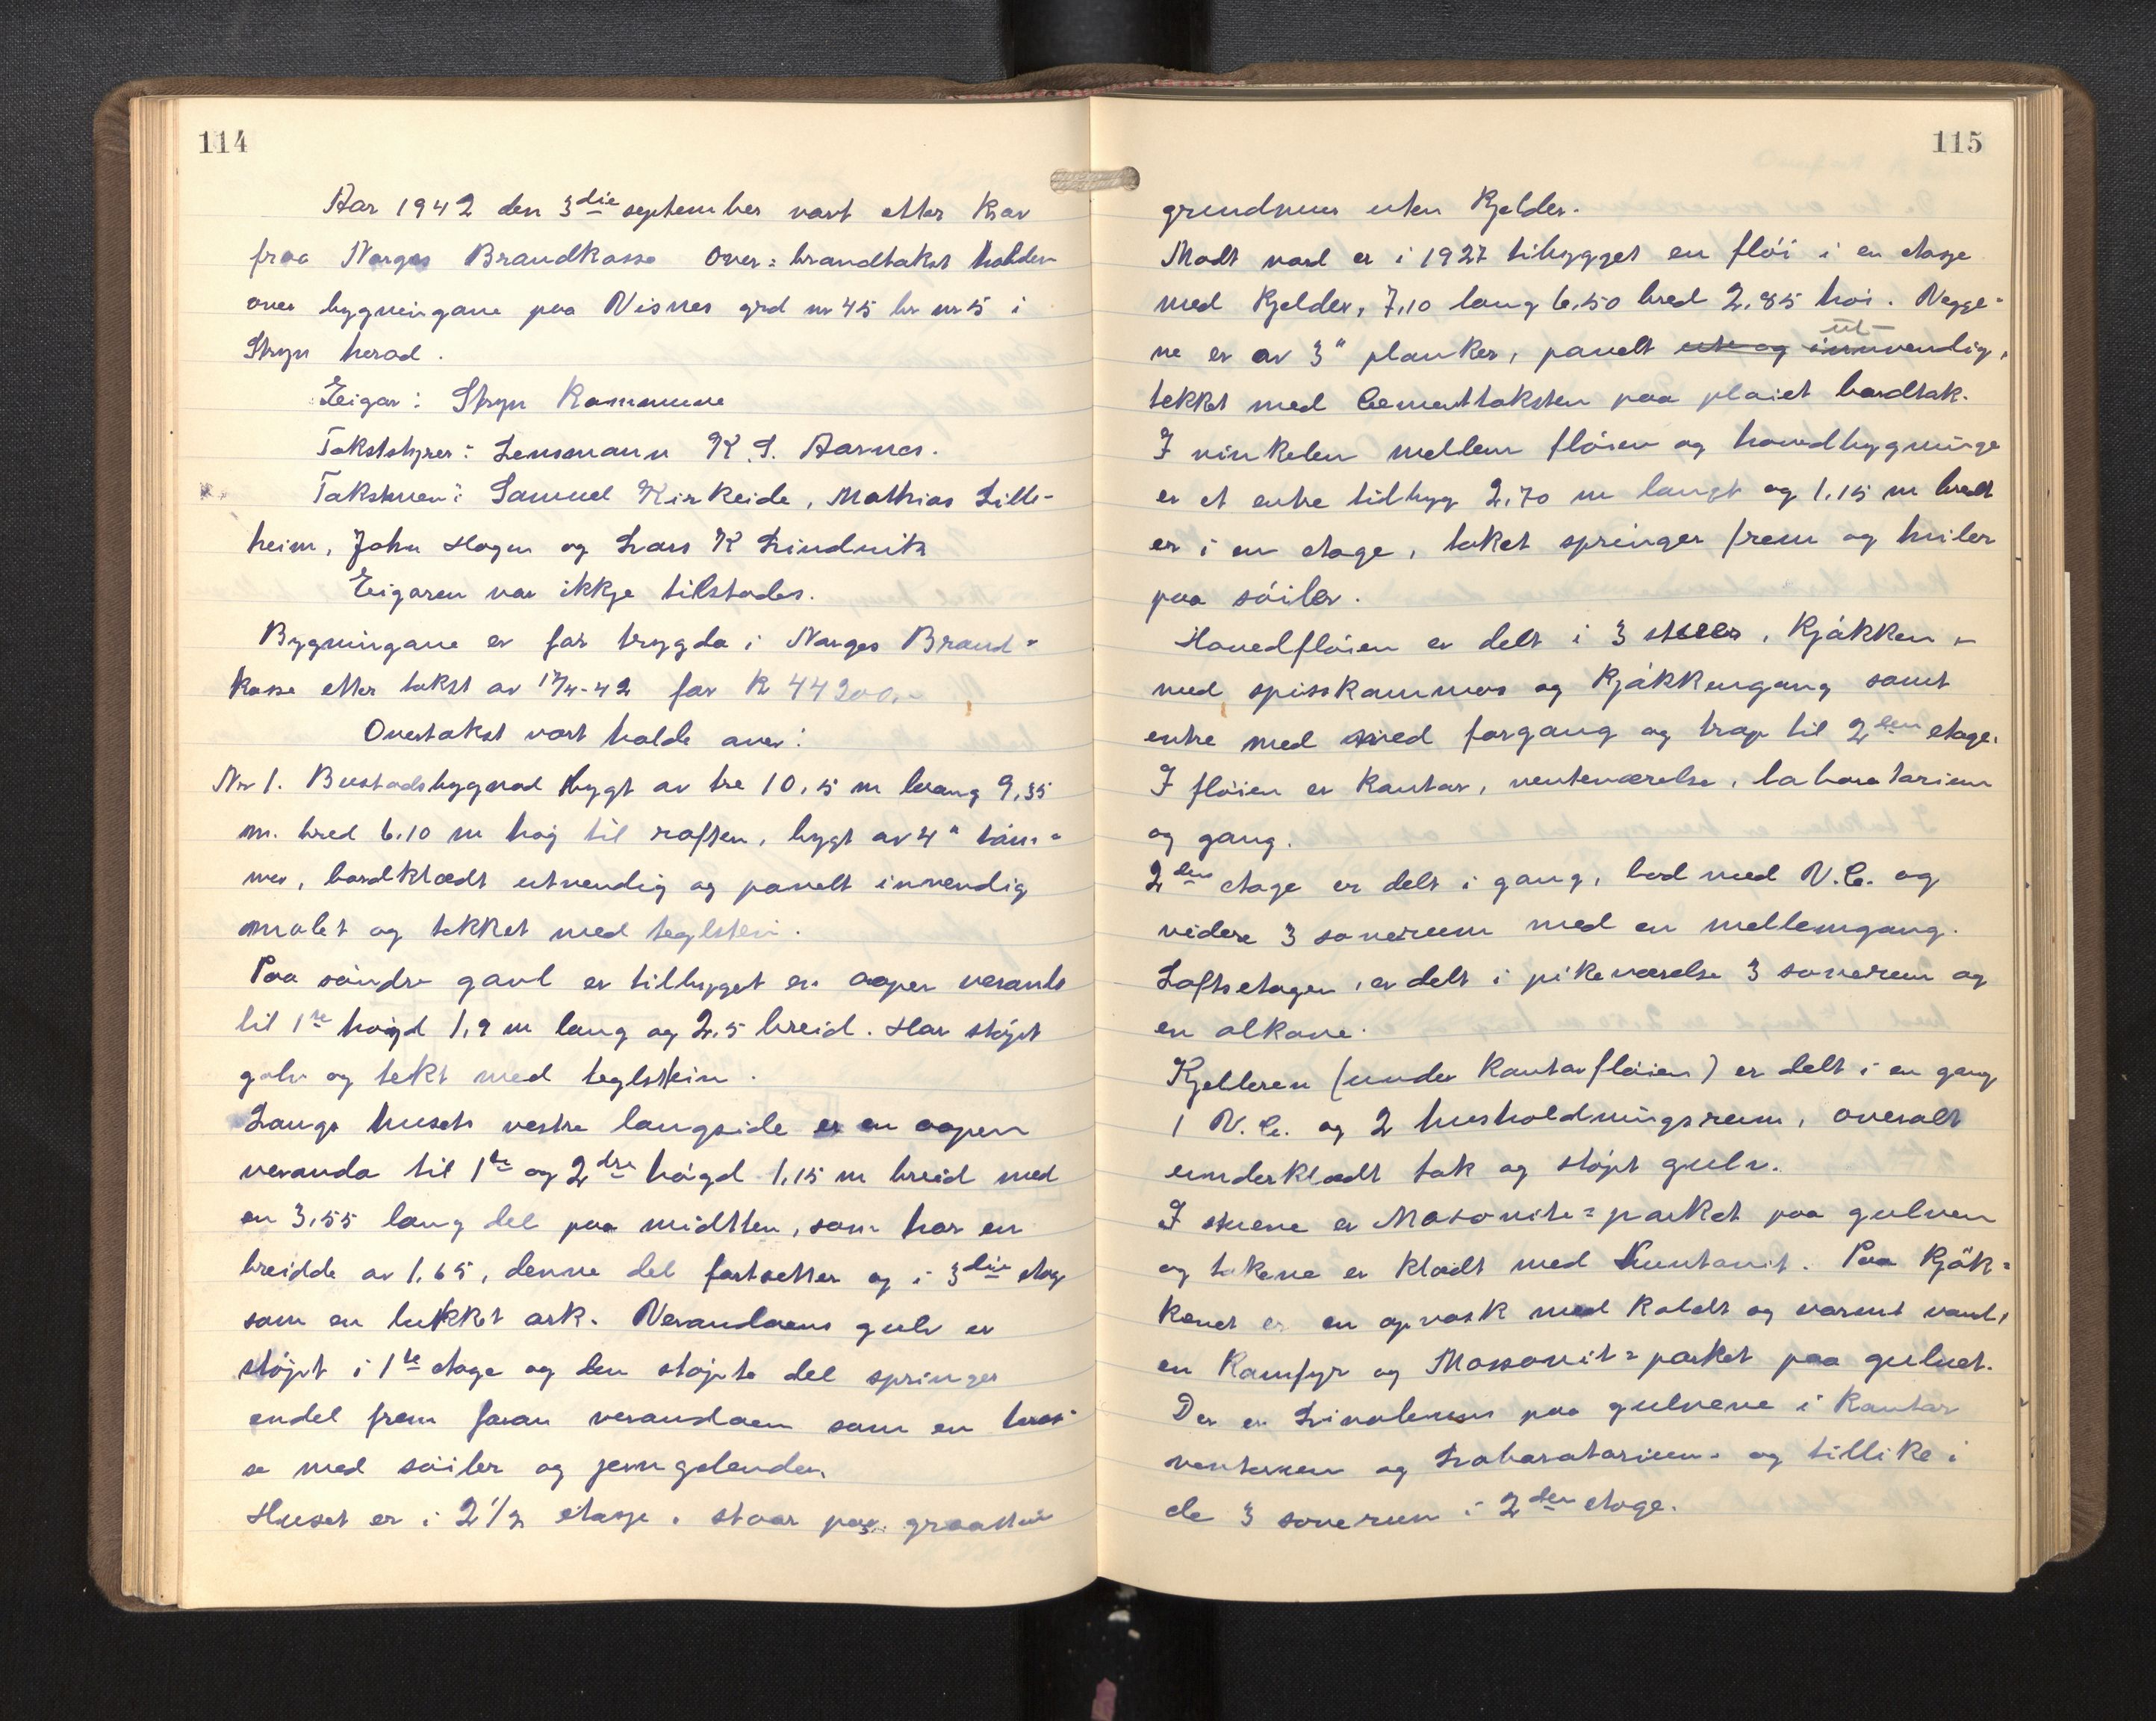 114
Aar 1942 den 3die september vart etter krav
fraa Norges Brandkasse over=brandtakst halden
over bygningane paa Visnes grd nr 45 br nr 5 i
Stryn herad.
Eigar: Stryn Kommune
Takststyrer: Lensmann K. S. Aarnes.
Takstmen: Samuel Kirkeide, Mathias Lille-
heim, John Hogen og Lars K Lindvik
Eigaren var ikkje tilstades.
Bygningane er før trygda i Norges Brand=
kasse etter takst av 17/4-42 for kr 44200,-
Overtakst vart halde over:
Nr 1. Bustadsbygnad bygt av tre 10,5 m lang 9,35
m. bred 6.10 m høg til raften, bygt av 4" tøm=
mer, bordklædt utvendig og panelt innvendig
malet og tekket med teglsten.
Paa søndre gavl er tilbygget en aapen veranda
til 1ste høgd 1,9 m lang og 2,5 breid. Har støypt
golv og tekt med teglstein.
Langs husets vestre langside er en aapen
veranda til 1ste og 2dre høgd 1,15 m breid med
en 3,55 lang del paa midtten, som har en
breidde av 1,65, denne del fortsetter og i 3die etage
som en lukket ark. Verandaens gulv er
støpt i 1ste etage og den støpte del springer
endel frem foran verandaen som en teras=
se med søiler og jerngelender.
Huset er i 2 1/2 etasje. staar paa graastein
115
grundmur uten kjelder.
Modt nord er i 1927 tilbygget en fløi i en etasje
med kjelder, 7,10 lang 6,50 bred 2,85 høi. Vegge=
ne er av 3" planker, panelt ute og innvendig,
ut-
tekket med Cementtaksten paa pløiet bordtak.
I vinkelen mellem fløien og hovedbygninge
er et entre tilbyg 2,70 m langt og 1,15 m bredt
er i en etage, taket springer frem og hviler
paa søiler.
Hovedfløien er delt i 3 stuer, kjøkken
med spisskammers og kjøkkengang samt
entre med forgang og trap til 2den etage.
I fløien er kontor, venteværelse, laboratorium
og gang.
2den etage er delt i gang, bad med V.C. og
videre 3 soverum med en mellemgang.
Loftsetagen, er delt i pikeværelse 3 soverum og
en alkove.
Kjelleren (under kontorfløien) er delt i en gang
1 V.C. og 2 husholdningsrum, overalt
underklædt tak og støpt gulv.
I stuene er Masonite=parket paa gulven
og takene er klædt med Huntonit. Paa kjøk=
kenet er en opvask med koldt og varmt vand,
en Kamfyr og Massonit=parket paa gulvet.
Der er Linoleum paa gulvene i kontor
venterum og Laboratorium og tillike i
de 3 soverum i 2den etage.